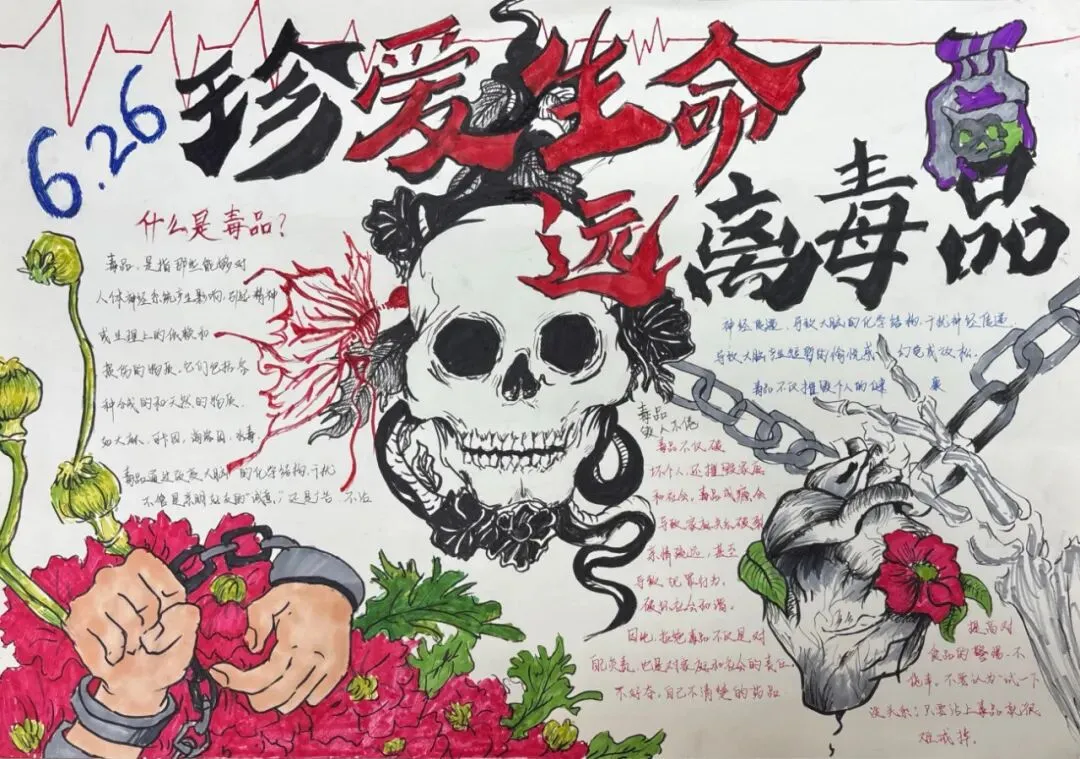 6.26
珍爱生命
远离毒品
什么是毒品？
毒品，是指那些能够对
人体神经系统产生影响，引起精神
或生理上的依赖和
损伤的物质。它们包括各
种合成的和天然的物质，
如大麻、可卡因、海洛因、冰毒。
毒品通过改变大脑的化学结构，干扰
不管是亲朋好友的“诚意”，还是
神经传递，导致大脑的化学结构，干扰神经传递，
导致大脑产生短暂的愉悦感、幻觉或放松。
毒品不仅摧毁个人的健 康
毒品
毒品不仅破
坏个人，还摧毁家庭
和社会。毒品成瘾会
导致家庭关系破裂
亲情疏远，甚至
导致犯罪行为，
破坏社会和谐。
因此，拒绝毒品不仅是对
自己负责，也是对家庭和社会的责任。
不好奇，自己不清楚的药品
提高对
食品的警惕，不
侥幸，不要认为“试一下
没关系”，只要沾上毒品就很
难戒掉。